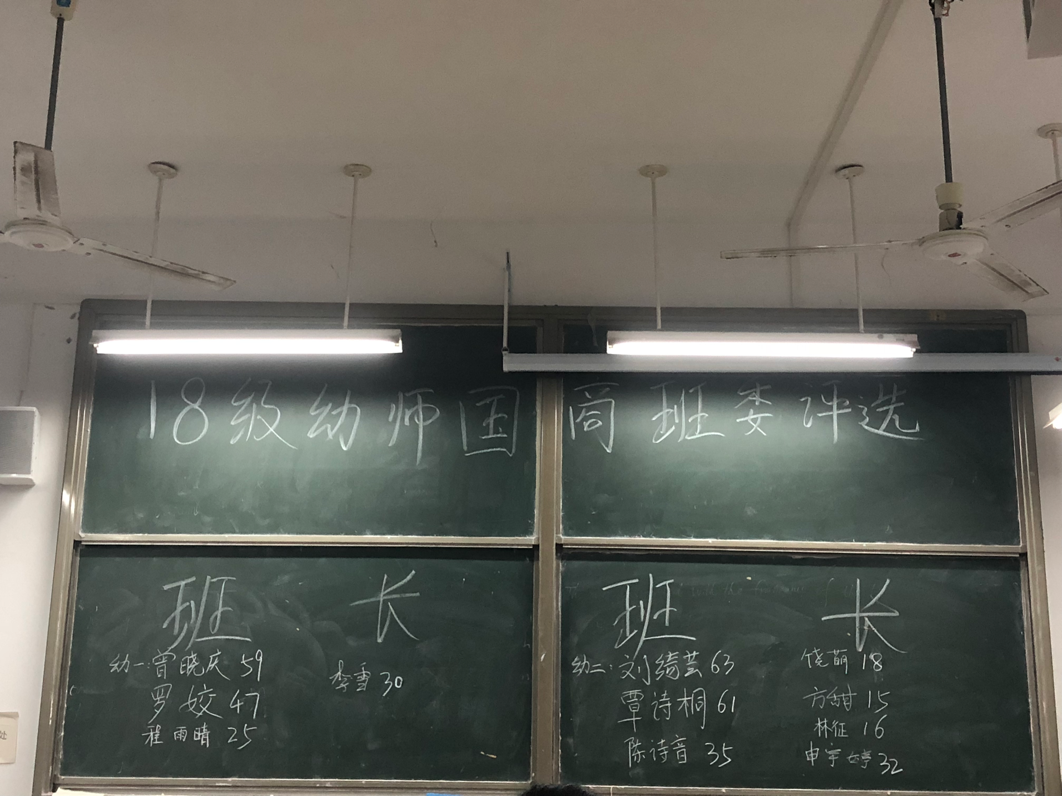 18级幼师国商班委评选
班长
幼一:曾晓庆 59
罗姣 47
程雨晴 25
李雪 30
班长
幼二:刘绮芸 63
覃诗桐 61
陈诗音 35
饶萌 18
方甜 15
林征 16
申宇婷 32